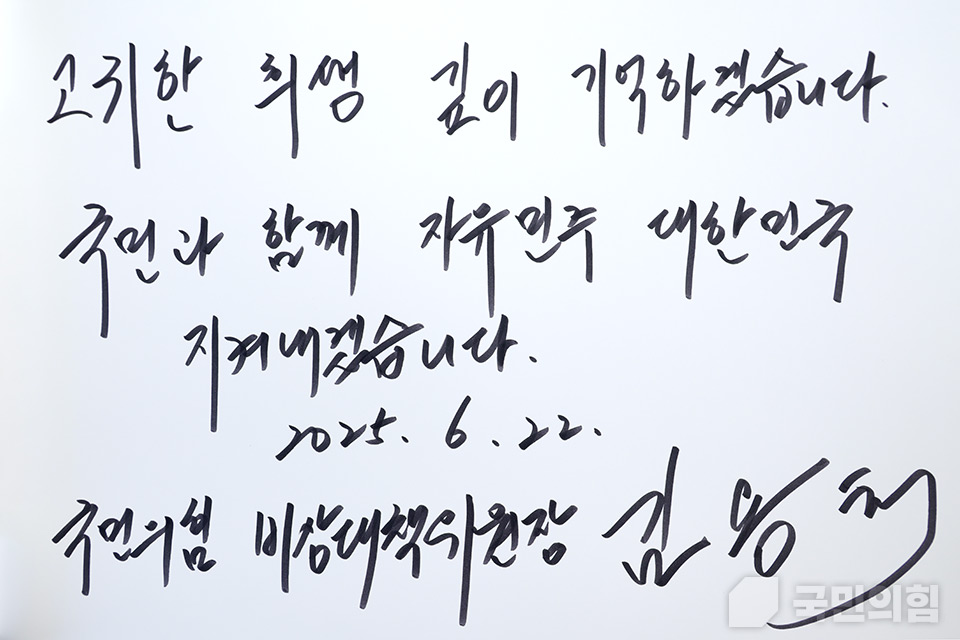 고귀한 희생 깊이 기억하겠습니다.
국민과 함께 자유민주 대한민국
지켜내겠습니다.
2025. 6. 22.
국민의힘 비상대책위원장 김용태
국민의힘